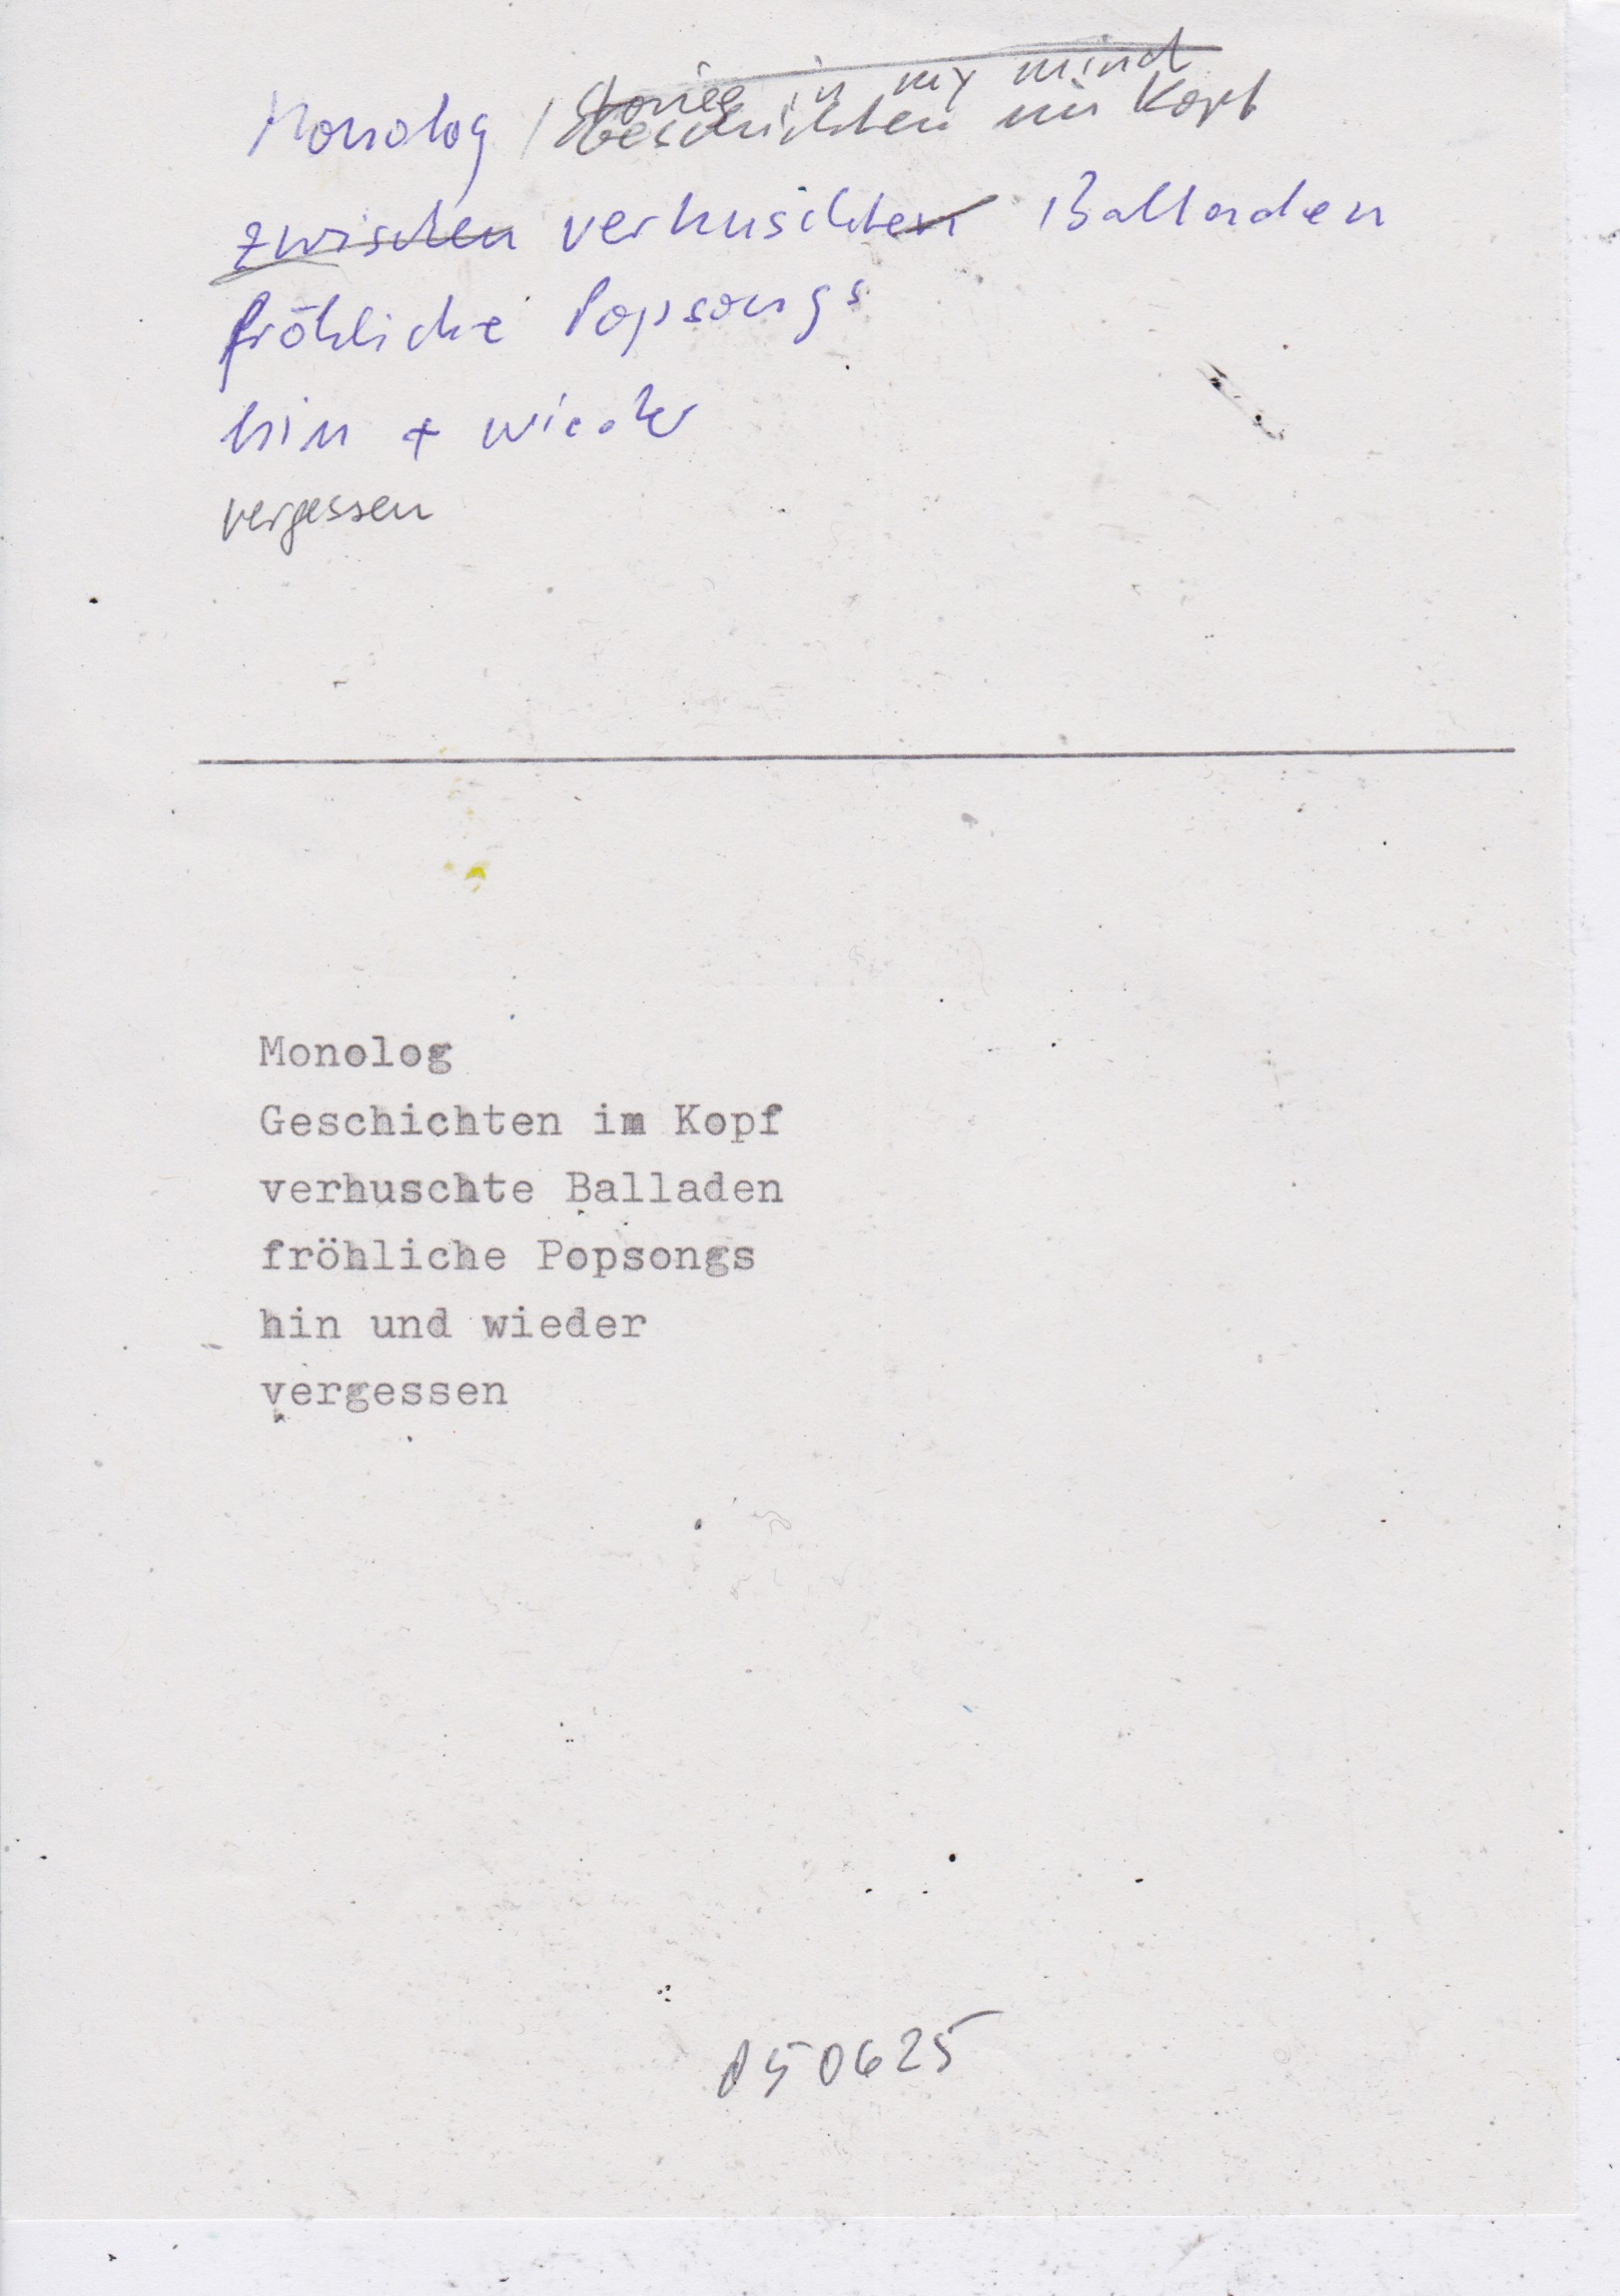 Stories in my mind
Monolog / Geschichten im Kopf
zwischen verhuschten Balladen
fröhliche Popsongs
hin + wieder
vergessen
Monolog
Geschichten im Kopf
verhuschte Balladen
fröhliche Popsongs
hin und wieder
vergessen
050625